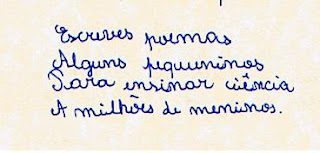 Escreves poemas
Alguns pequeninos
Para ensinar ciência
A milhões de meninos.